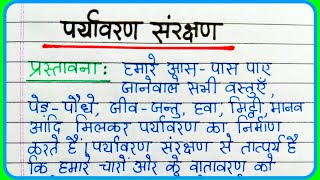 पर्यावरण संरक्षण
प्रस्तावना: हमारे आस-पास पाए
जानेवाले सभी वस्तुएँ,
पेड़-पौधे, जीव-जन्तु, हवा, मिट्टी, मानव
आदि मिलकर पर्यावरण का निर्माण
करते हैं। पर्यावरण संरक्षण से तात्पर्य है
कि हमारे चारों ओर के वातावरण को